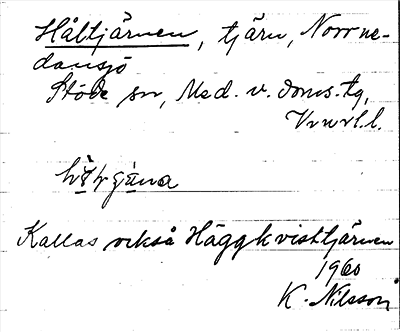 Håltjärnen, tjärn, Norrne-
dansjö
Stöde sn, Med. v. doms.tg,
Kallas också Häggkvisttjärnen
1960
K. Nilsson